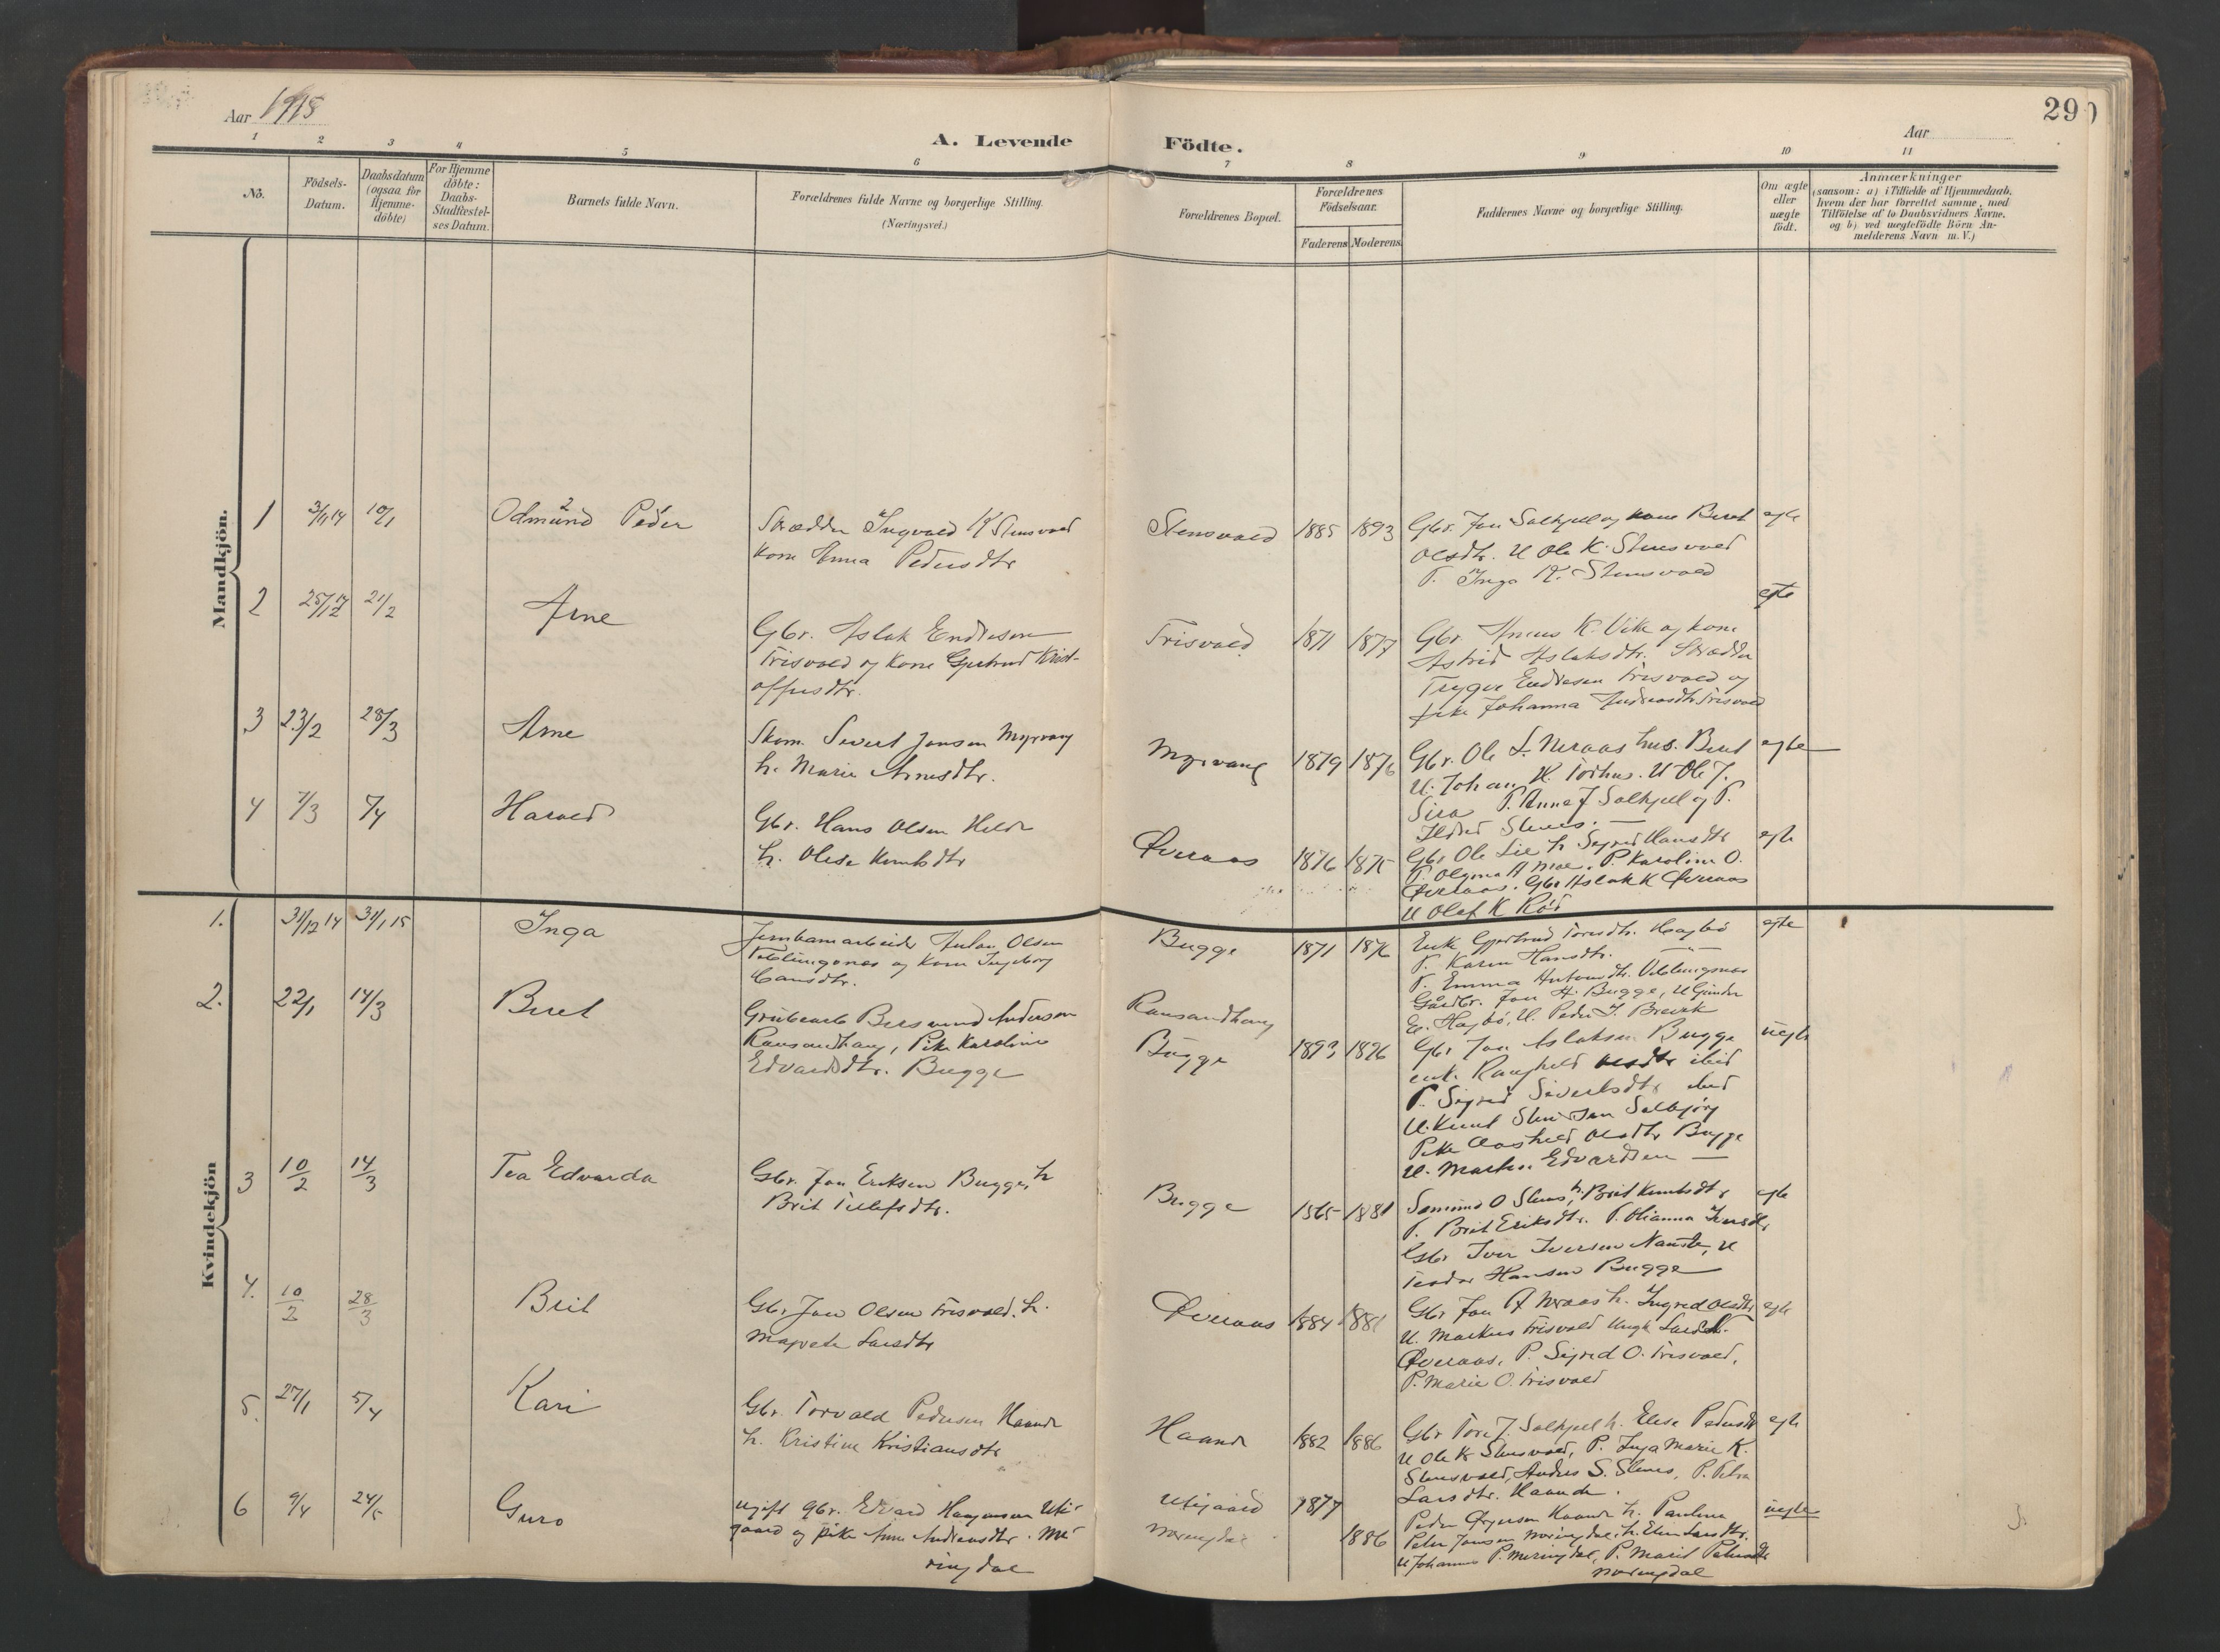 Aar 1915
29
Aar
A. Levende Födte.
1 2 3 4 5 6 7 8 9 10 11
No.
Födsels-
Datum.
Daabsdatum
(ogsaa for
Hjemme-
döbte)
For Hjemme
döbte:
Daabs-
Stadfæstel-
ses Datum.
Barnets fulde Navn.
Forældrenes fulde Navne og borgerlige Stilling.
(Næringsvei.)
Forældrenes Bopæl.
Forældrenes
Födselsaar.
Faderens Moderens
Faddernes Navne og borgerlige Stilling.
Om ægte
eller
uægte
födt.
Anmærkninger
(saasom: a) i Tilfælde af Hjemmedaab,
hvem der har forrettet samme, med
Tilföielse af to Daabsvidners Navne,
og b) ved uægtefödte Börn An-
melderens Navn m. V.)
Mandkjön.
1 3/11 14 10/1 Odmund Peder
Skrædder Ingvald K Stensvold
Kone Anna Pedersdtr
Stensvold 1885 1893
Gbr. Jon Solhjell og kone Beret
Olsdtr. U Ole K. Stensvold
P. Inga K. Stensvold
egte
2 25/12 14 21/2 Arne
Gbr. Aslak Endresen
Trisvold og Kone Gjertrud Krist-
offersdtr.
Trisvold 1871 1877
Gbr. K. Vike og kone
Astrid Aslaksdtr. Skrædder
Trygve Endresen Trisvold og
pike Johanna Andreasdtr. Trisvold
egte
3 23/2 28/3 Arne
Skom. Sivert Jonsen Myrvang
h. Marie Arnesdtr.
Myrvang 1879 1876
Gbr. Ole L. Neraas hus. Beret
U. Johan K. Torhus. U Ole J.
Sira P. Anna J Solhjell og P.
Ildrid Stenes. —
egte
4 7/3 5/4 Harald
Gbr. Hans Olsen Helde
h. Olise Knutsdtr
Överaas 1876 1875
Gbr Ole Lie h Sigrid Hansdtr
P. Olgina A Moe. P. Karoline O.
Överaas. Gbr Aslak K Överaas
U Olaf K Röd
egte
Kvindekjön
1. 31/12 14 31/1 15 Inga
Jernbanearbeider Anton Olsen
Veblungsnes og Kone Ingeborg
Hansdtr.
Bugge 1871 1876
Enk. Gjertrud Toresdtr. Hagbö
P. Karen Hansdtr. —"—
P. Emma Antonsdtr. Veblungsnes
Gardbr. Jon H. Bugge, U Gunder
E. Hagbö, U. Peder J. Brevik
egte
2. 22/1 14/3 Beret
Grubearb Bersvend Anderson
Ransandhaug, Pike Karoline
Edvardsdtr. Bugge
Ransandhaug
Bugge 1893 1896
Gbr Jon Aslaksen Bugge
enk. Ragnhild Olsdtr ibid
P. Sigrid Sivertsdtr ibid
U. Knut Solbjörg
Pike Aashild Olsdtr Bugge
U. Martin Edvardsen —
uegte
3 10/2 14/3 Tea Edvarda
Gbr. Jon Eriksen Bugge, h
Brit Tellefsdtr.
Bugge 1865 1881
Samund O Stenes, h. Brit Knutsdtr
P. Brit Eriksdtr. P. Olianna Iversdtr
Gbr Iver Iversen Nauste, U
Teodor Hansen Bugge
egte
4. 10/2 28/3 Brit
Gbr Jon Olsen Trisvold. h.
Magrete Larsdtr
Överaas 1884 1881
Gbr Jon A Neraas h. Ingrid Olsdtr
U. Markus Trisvold Ungk Lars L.
Överaas, P. Sigrid O. Trisvold,
P. Marie O. Trisvold
egte
5. 27/1 5/4 Kari
Gbr. Torvald Pedersen Haande
h. Kristine Kristiansdtr
Haande 1882 1886
Gbr Tore J. Solhjell h. Elise Pedersdtr
U Ole K Stensvold, P. Inga Marie K.
Stensvold, Anders S. Stenes, P. Petra
Larsdtr. Haande.
egte
6 9/4 24/5 Guro
ugift gbr. Edvard Haagensen Uti-
gaard og pike Anne Andreasdtr. Me-
ringdal
Utigaard 1877
Meringdal 1886
Peder Haande h. Pauline
Peter Jonsen Meringdal, h. Elen Larsdtr.
U Johannes P. Meringdal, P. Marit Petersdtr
Meringdal
uegte